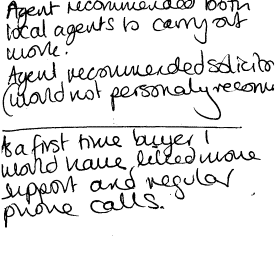 Agent recommended both
local agents to carry out
work.
Agent recommended solicitor
(would not personaly recom
As a first time buyer I
would have liked more
support and regular
phone calls.